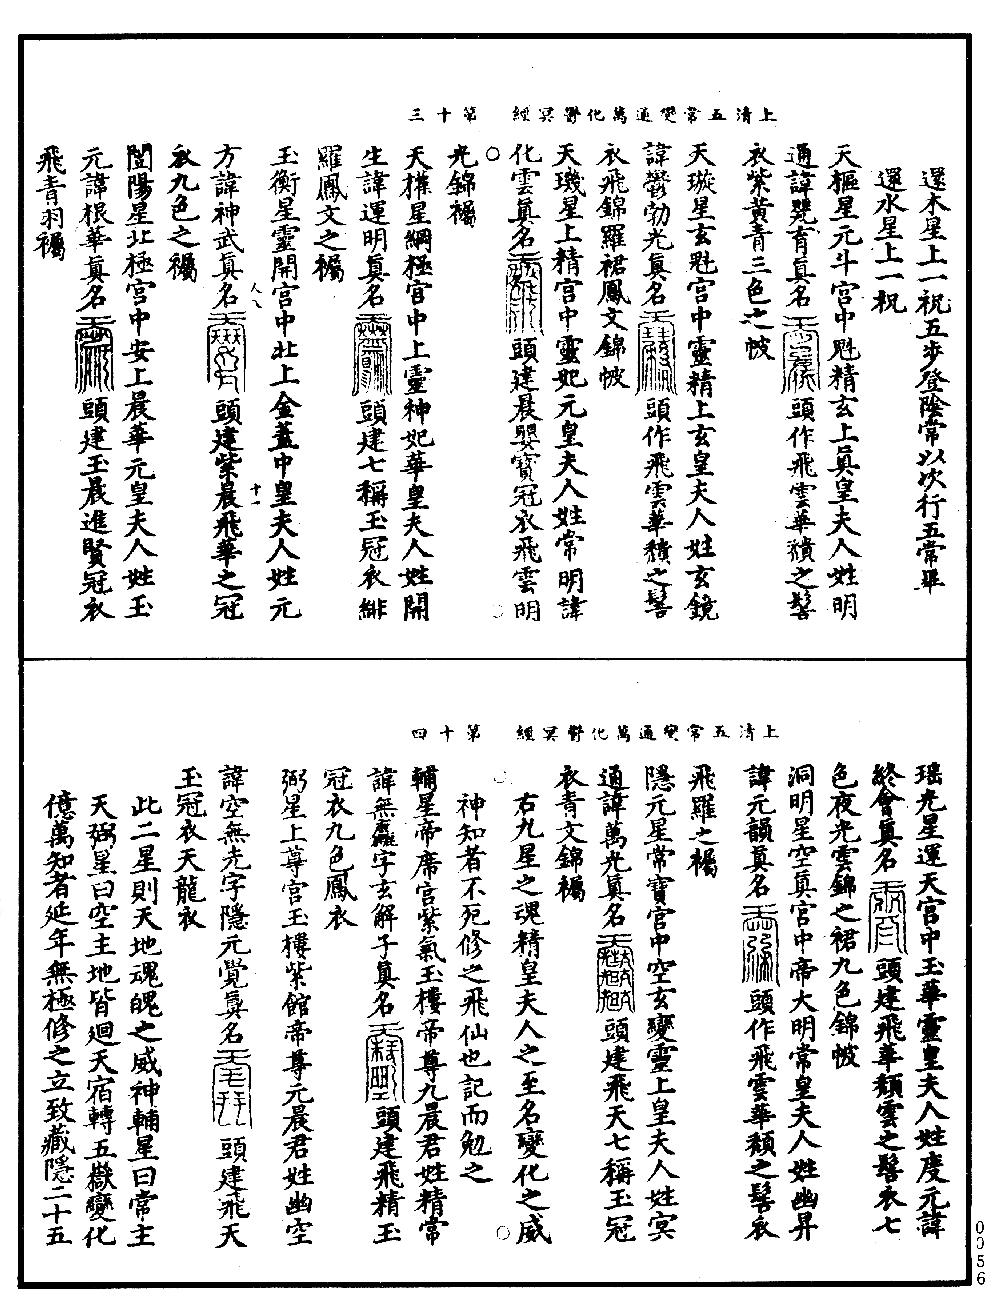 上清五常變通萬化鬱冥經　第十三
還木星上一祝五步登陰常以次行五常畢
還水星上一祝
天樞星元斗宮中魁精玄上真皇夫人姓明
通諱巍育真名
頭作飛雲華積之髻
衣紫黃青三色之帔
天璇星玄魁宮中靈精上玄皇夫人姓玄鏡
諱鬱勃光真名
頭作飛雲華積之髻
衣飛錦羅裙鳳文錦帔
天璣星上精宮中靈妃元皇夫人姓常明諱
化雲真名
頭建晨嬰寶冠衣飛雲明
光錦襡
天權星綱極官中上靈神妃華皇夫人姓開
生諱運明真名
頭建七稱玉冠衣緋
羅鳳文之襡
玉衡星靈開宮中北上金蓋中皇夫人姓元
方諱神武真名
頭建紫晨飛華之冠
衣九色之襡
闓陽星北極宮中安上晨華元皇夫人姓玉
元諱根華真名
頭建玉晨進賢冠衣
飛青羽襡
人八
十一
上清五常變通萬化鬱冥經　第十四
瑤光星運天宮中玉華靈皇夫人姓度元諱
終會真名
頭建飛華頹雲之髻衣七
色夜光雲錦之裙九色錦帔
洞明星空真宮中帝大明常皇夫人姓幽昇
諱元韻真名
頭作飛雲華頹之髻衣
飛羅之襡
隱元星常寶宮中空玄變靈上皇夫人姓冥
通諱萬光真名
頭建飛天七稱玉冠
衣青文錦襡
右九星之魂精皇夫人之至名變化之威
神知者不死修之飛仙也記而勉之
輔星帝席宮紫氣玉樓帝尊九晨君姓精常
諱無灕字玄解子真名
頭建飛精玉
冠衣九色鳳衣
弼星上尊宮玉樓紫館帝尊元晨君姓幽空
諱空無先字隱元覺真名
頭建飛天
玉冠衣天龍衣
此二星則天地魂魄之威神輔星曰常主
天弼星曰空主地皆迴天宿轉五嶽變化
億萬知者延年無極修之立致藏隱二十五
0056